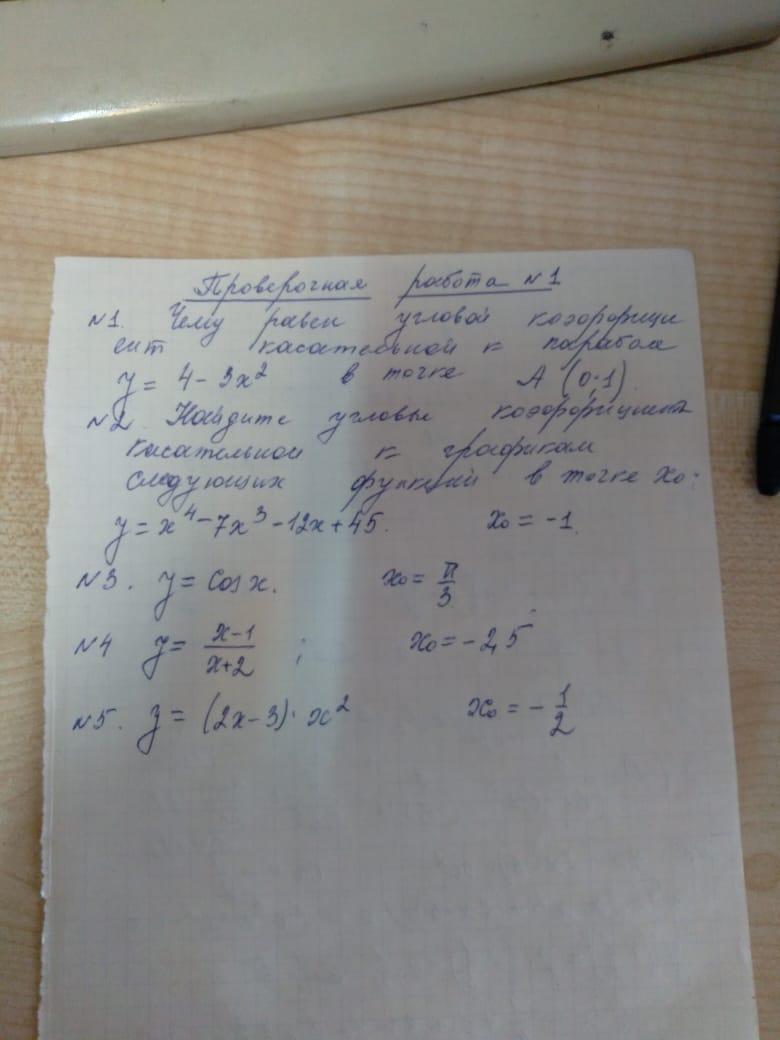 Проверочная работа №1
№1. Чему равен угловой коэффици
ент касательной к параболе
y = 4 - 3x² в точке A (0;1)
№2. Найдите угловые коэффициент
касательной к графикам
следующих функций в точке x₀:
y = x⁴ - 7x³ - 12x + 45. x₀ = -1.
№3. y = cos x. x₀ = π/3
№4 y = (x-1)/(x+2) ; x₀ = -2,5
№5. y = (2x-3)·x² x₀ = -1/2